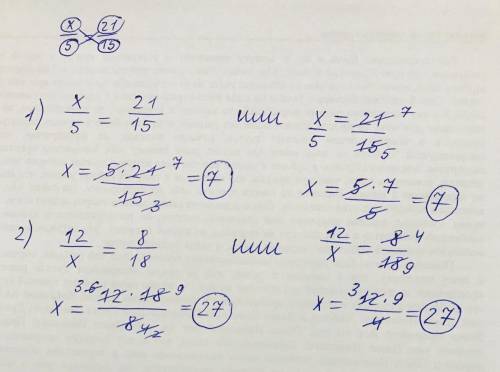 x/5 = 21/15
1) x/5 = 21/15 или x/5 = 21 7/15 5
x = 5·21 7/15 3 = 7 x = 5·7/5 = 7
2) 12/x = 8/18 или 12/x = 8 4/18 9
x = 3 6 12·18 9/8 4 2 = 27 x = 3 12·9/4 = 27